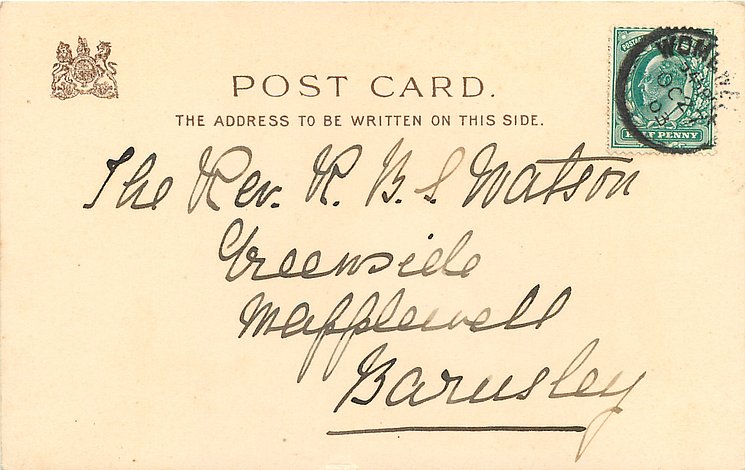 POST CARD.
THE ADDRESS TO BE WRITTEN ON THIS SIDE.
HALF PENNY
The Rev. R. B. S. Watson
Greenside
Mapplewell
Barnsley